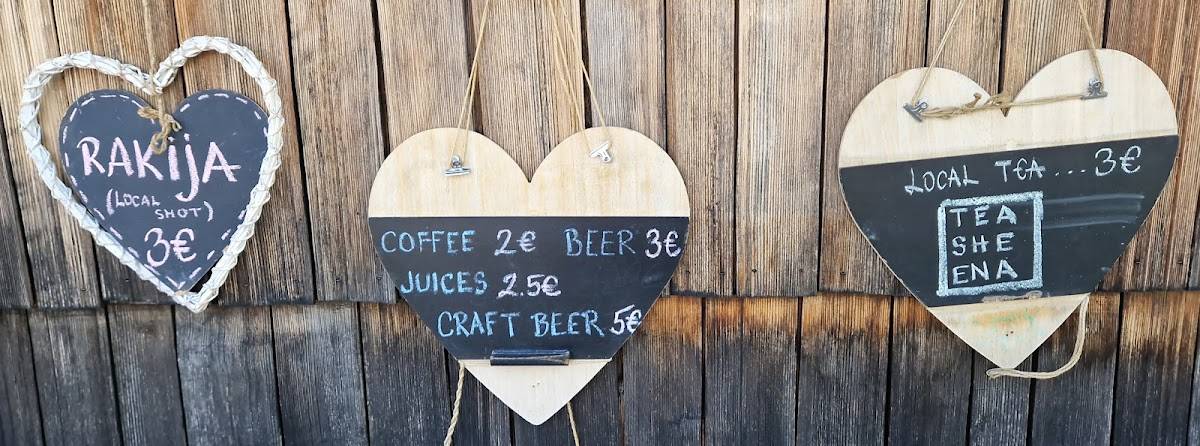 RAKijA
(LOCAL
SHOT)
3€
COFFEE 2€ BEER 3€
JUICES 2.5€
CRAFT BEER 5€
LOCAL T€A ... 3€
TEA
SHE
ENA